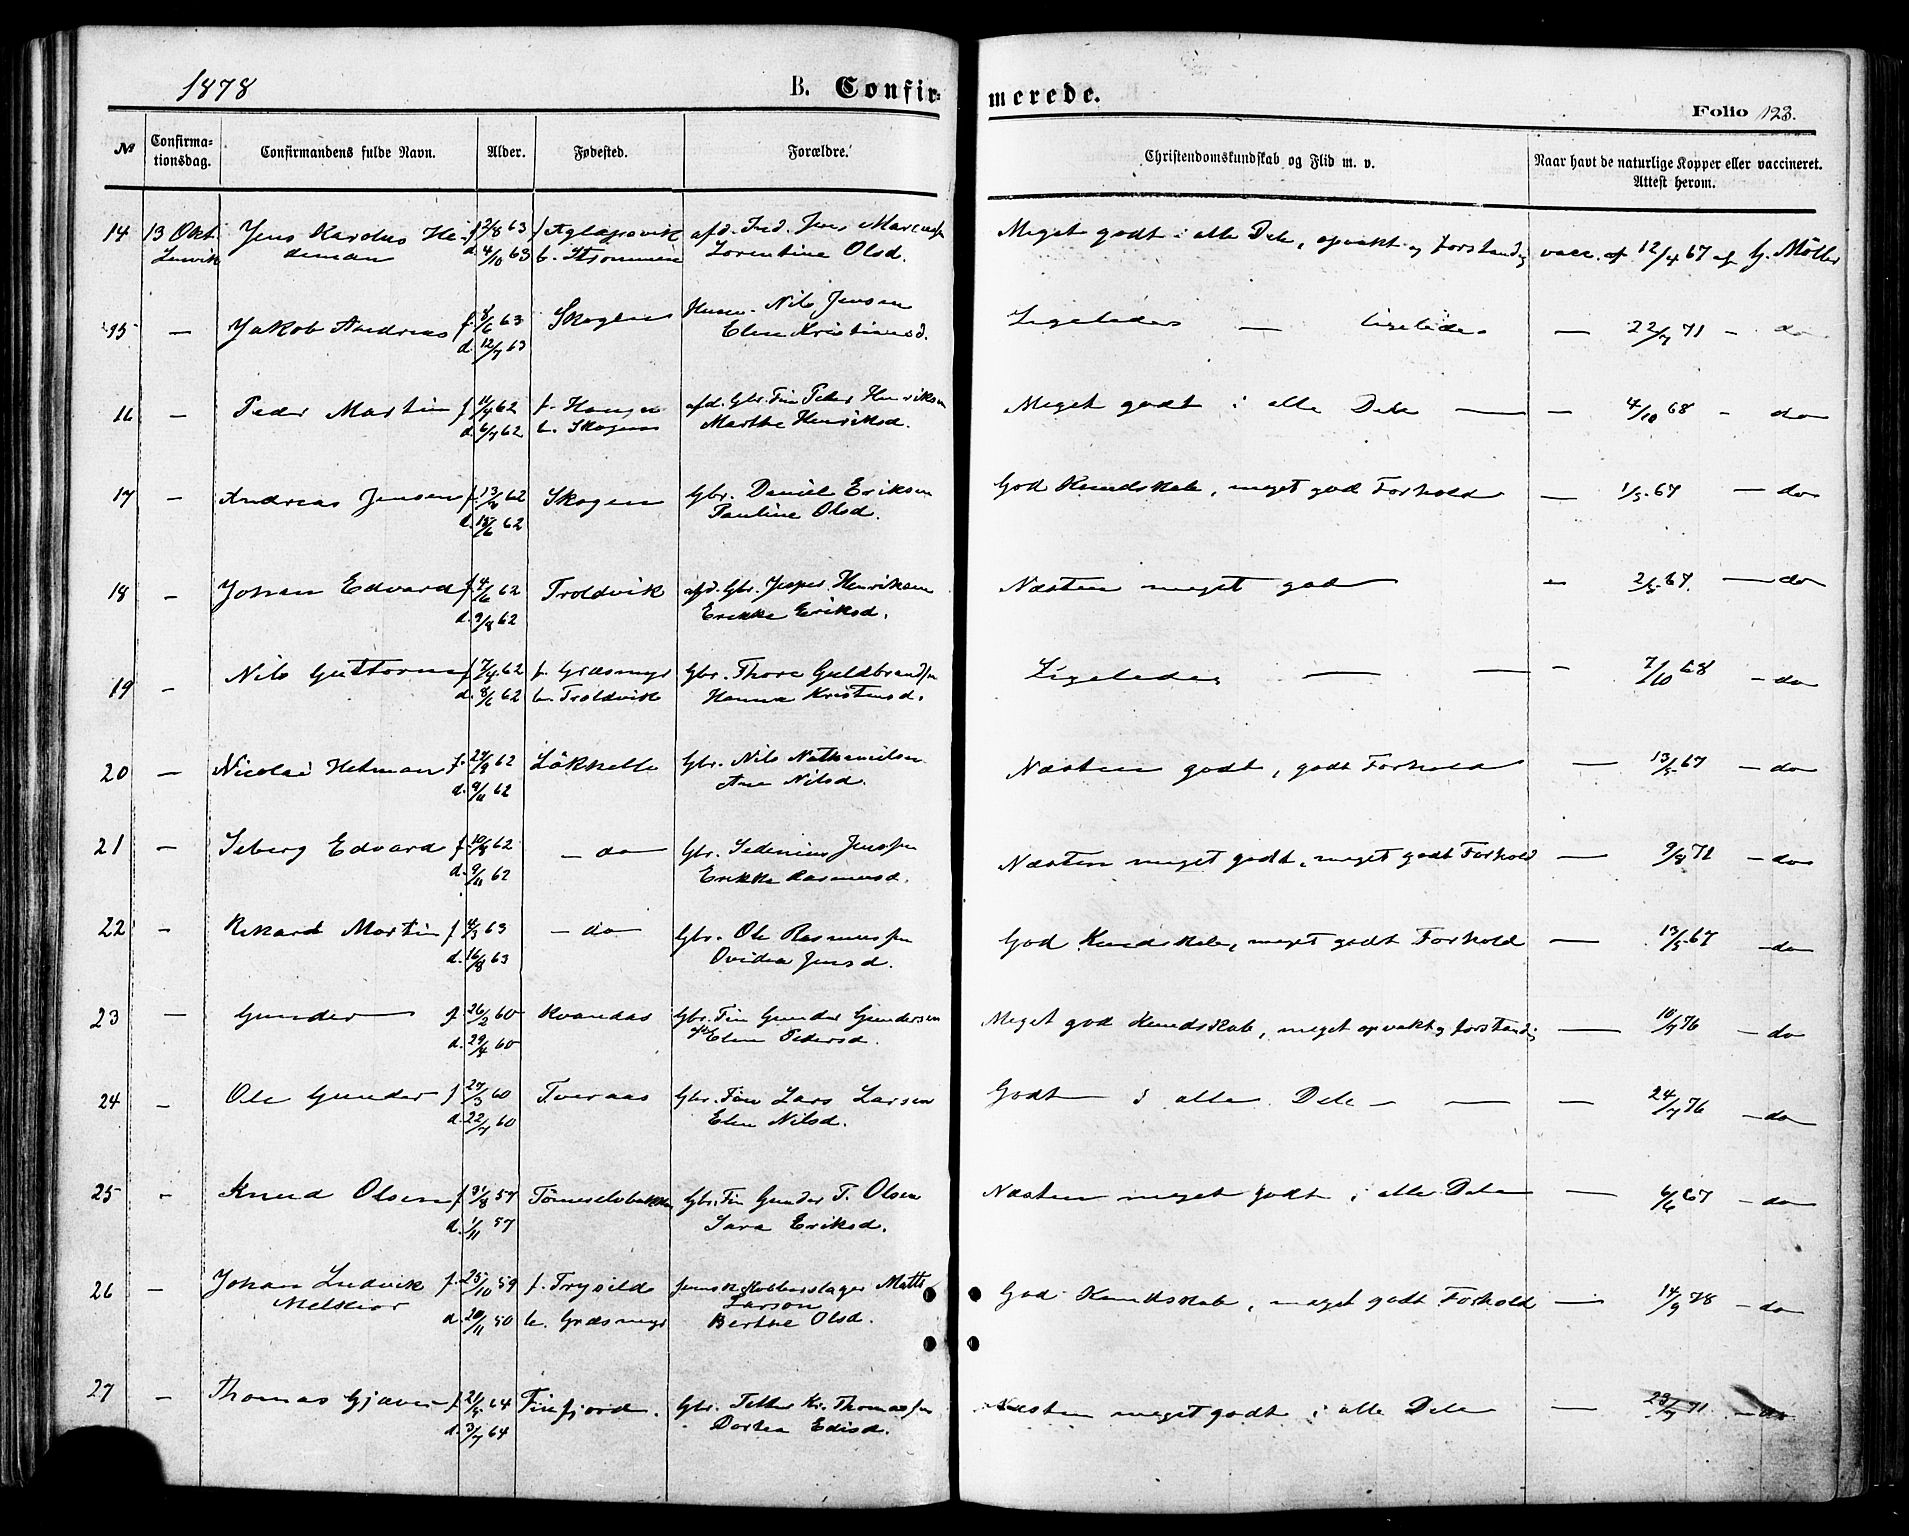 1878
B. Confirmerede.
Folio 123.
No Confirmationsdag. Confirmandens fulde Navn. Alder. Fødested. Forældre. Christendomskundskab og Flid m. v. Naar havt de naturlige Kopper eller vaccineret. Attest herom.
14 13 Okt. Jens Kardus He- f. 2/8 63 afd. Ind. Jens Meget godt i alle Dele, opvakt og forstandig vacc. af 12/4 67 af G. Möller
Lenvik deman d. 4/10 63 b. Lorentine Olsd.
15 — Jakob Andreas f. 8/6 63 Nils Jensen Ligeledes — ligeledes — 22/7 71 — do
d. 12/7 63 Elen Kristiansd.
16 — Peder Martin f. 11/4 62 f. afd. Gbr. Fin Peter Henriksen Meget godt i alle Dele — — 4/10 68 — do
d. 6/7 62 b. Skogen Marthe Henriksd.
17 — Andreas Jensen f. 62 Skogen Gbr. Daniel Eriksen God Kundskab, meget god Forhold — 1/5 67 — do
d. 62 Pauline Olsd.
18 — Johan Edvard f. 4/6 62 Troldvik afd. Gbr. Jesper Henriksen Næsten meget god — — 2/5 67. — do
d. 9/8 62 Erikke Eriksd.
19 — Nils Guttorm f. 7/4 62 f. Græsmyr Gbr. Thore Guldbrandsen Ligeledes — — — 7/10 68 — do
d. 8/6 62 b. Troldvik Hanna Kristensd.
20 — Nicolai Hetman f. 27/9 62 Gbr. Nils Nathanielsen Næsten godt, godt Forhold — 13/5 67 — do
d. 9/11 62 Ane Nilsd.
21 — Seberg Edvard f. 10/8 62 — do — Gbr. Sedenius Jenssen Næsten meget godt, meget godt Forhold — 9/8 72 — do
d. 9/11 62 Erikke Rasmusd.
22 — Rikard Martin f. 4/3 63 — do — Gbr. Ole Rasmussen God Kundskab, meget godt Forhold — 13/5 67 — do
d. 16/8 63 Ovidea Jensd.
23 — Gunder — f. 26/2 60 Kvandas Gbr. Fin Gunder Gundersen Meget god Kundskab, meget opvakt og forstandig — 10/7 76 — do
d. 29/4 60 Elen Pedersd.
24 — Ole Gunder f. 27/3 60 Tveraas Gbr. Fin Lars Larsen Godt i alle Dele — — — 24/7 76 — do
d. 22/7 60 Elen Nilsd.
25 — Knud Olsen f. 31/8 57 Tömmeselvbakken Gbr. Fin Gunder T. Olsen Næsten meget godt i alle Dele — 6/6 67 — do
d. 1/11 57 Sara Eriksd.
26 — Johan Ludvik f. 25/10 59 f. Trysild Kobberslager Matts God Kundskab, meget godt Forhold — 14/9 78 — do
Melkior Larson
d. 20/11 50 b. Græsmyr Berthe Olsd.
27 — Thomas Gjæver f. 21/5 64 Finfjord. Gbr. Fetter Kr. Thomassen Næsten meget godt i alle Dele — 23/7 71 — do
d. 3/7 64 Dortea Edisd.